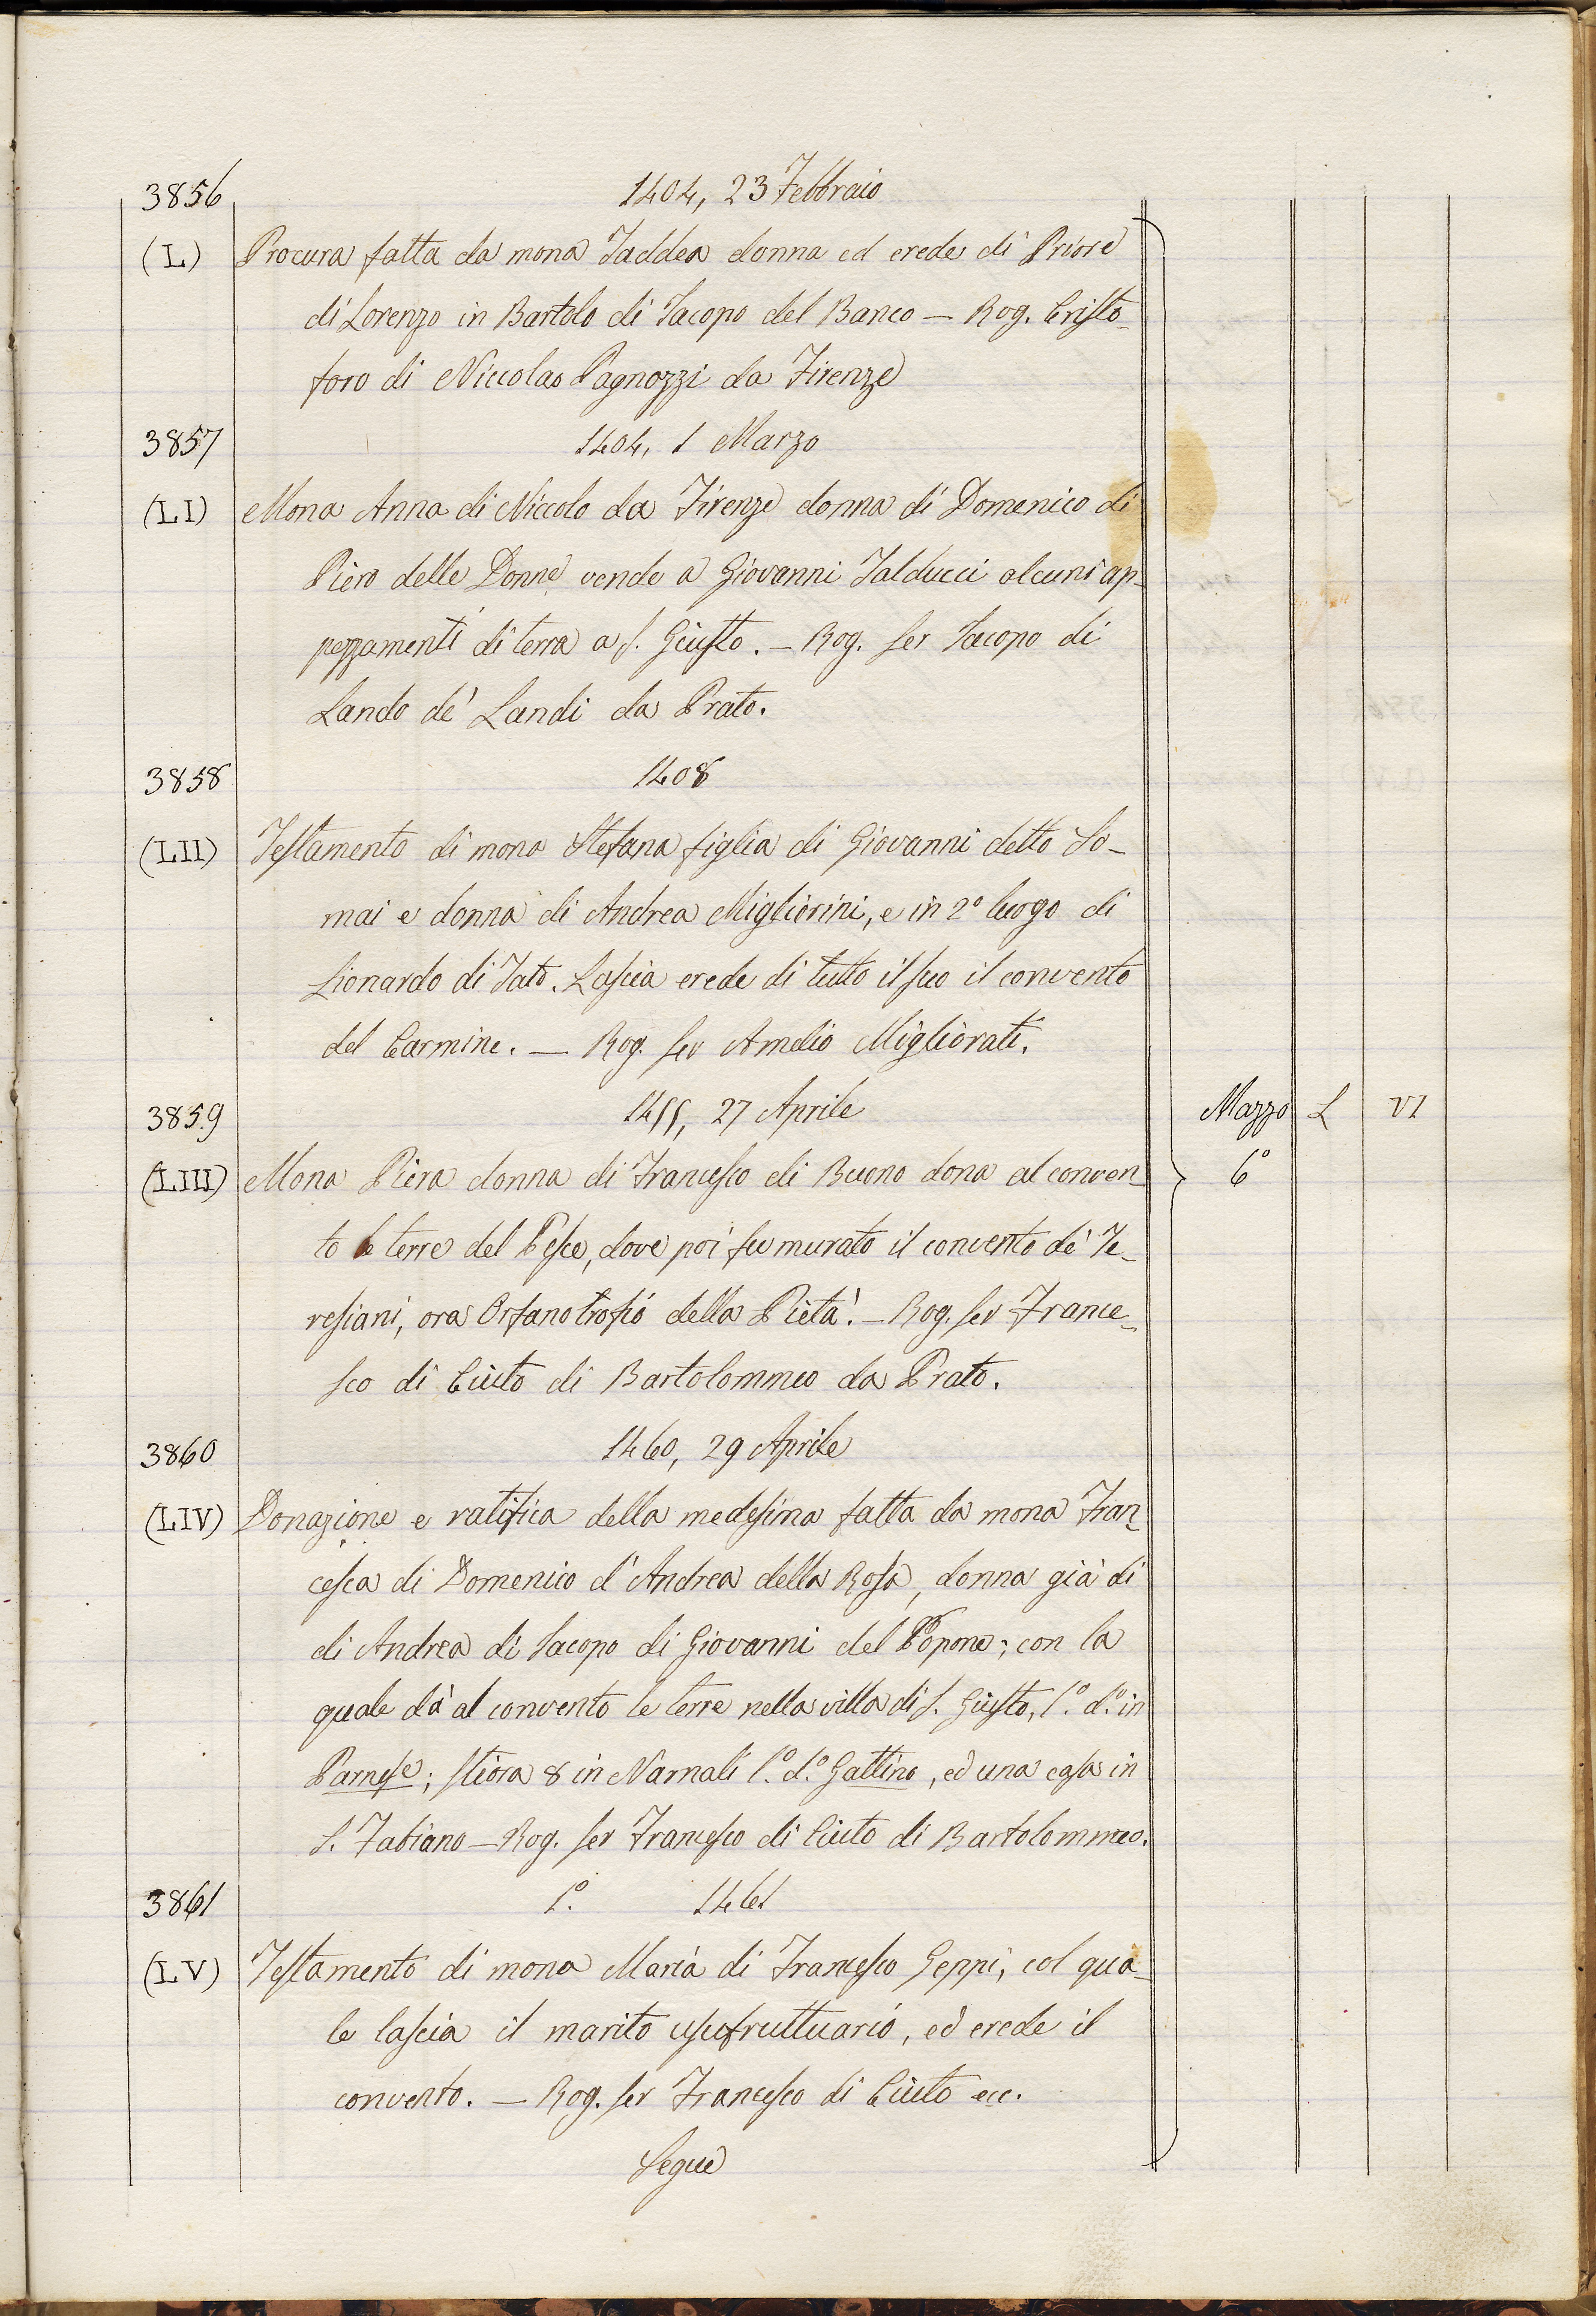 3856 1404, 23 Febbraio
(L) Procura fatta da mona Taddea donna ed erede di Priore
di Lorenzo in Bartolo di Iacopo del Banco — Rog. Cristo-
foro di Niccolao Pagnozzi da Firenze
3857 1404, 1 Marzo
(LI) Mona Anna di Niccolo da Firenze donna di Domenico di
Piero delle Donne vende a Giovanni Talducci alcuni ap-
pezzamenti di terra a S. Giusto. — Rog. ser Iacopo di
Lando de' Landi da Prato.
3858 1408
(LII) Testamento di mona Stefana figlia di Giovanni detto So-
mai e donna di Andrea Migliorini, e in 2º luogo di
Lionardo di Tato. Lascia erede di tutto il suo il convento
del Carmine. — Rog. ser Amelio Migliorati.
3859 1455, 27 Aprile Mazzo L VI
(LIII) Mona Piera donna di Francesco di Buono dona al conven- 6º
to le terre del Pesce, dove poi fu murato il convento de' Te-
resiani, ora Orfanotrofio della Pietà. — Rog. ser France-
sco di Ciuto di Bartolommeo da Prato.
3860 1460, 29 Aprile
(LIV) Donazione e ratifica della medesima fatta da mona Fran-
cesca di Domenico d'Andrea della Rosa, donna già di
di Andrea di Iacopo di Giovanni del Popone; con la
quale dà al convento le terre nella villa di S. Giusto, l.º d.º in
Parnese; stiora 8 in Narnali l.º d.º Gattino, ed una casa in
S. Fabiano — Rog. ser Francesco di Ciuto di Bartolommeo.
3861 1º. 1461
(LV) Testamento di mona Maria di Francesco Geppi, col qua-
le lascia il marito usufruttuario, ed erede il
convento. — Rog. ser Francesco di Ciuto ecc.
Segue